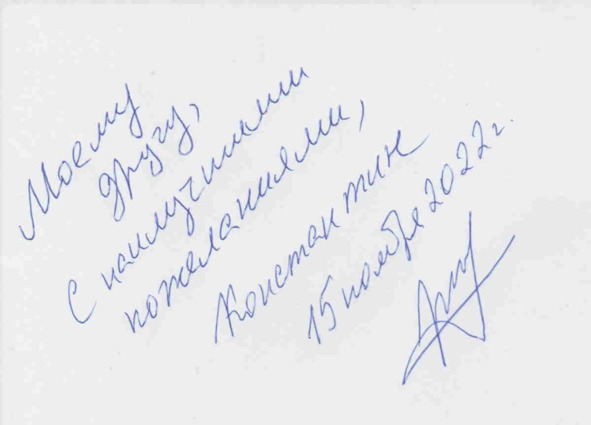 Моему
другу,
С наилучшими
пожеланиями,
Константин
15 ноября 2022 г.